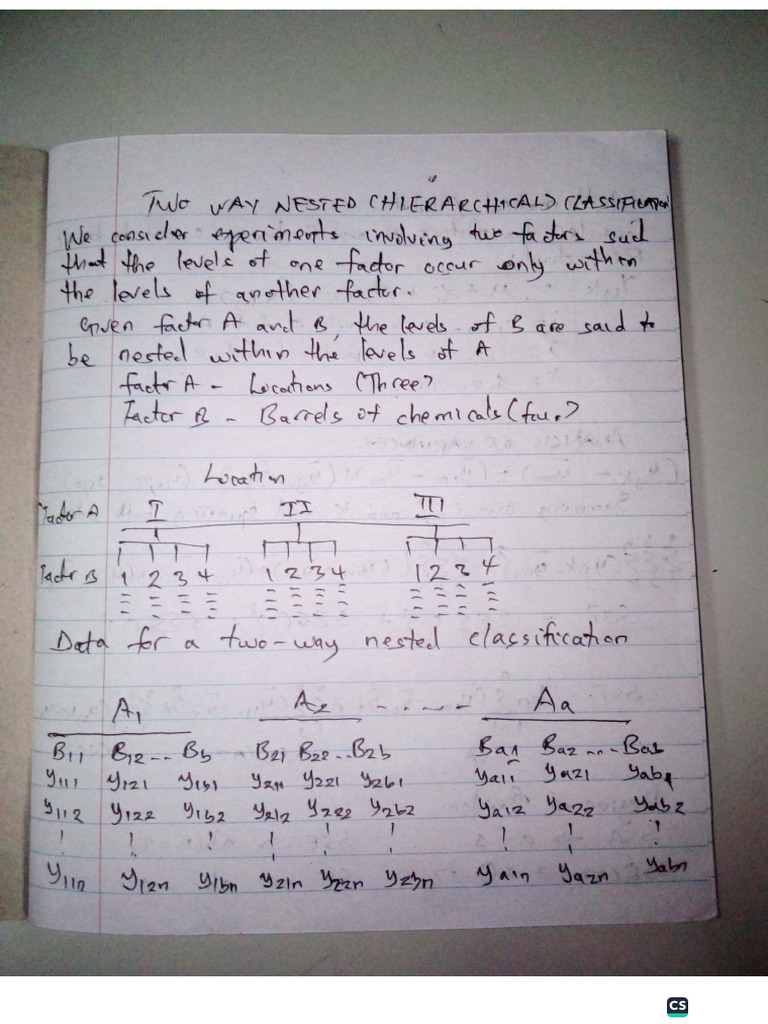 TWO WAY NESTED (HIERARCHICAL) CLASSIFICATION
We consider experiments involving two factors such
that the levels of one factor occur only within
the levels of another factor.
Given factor A and B, the levels of B are said to
be nested within the levels of A
factor A - Locations (Three)
Factor B - Barrels of chemicals (four)
Location
Factor A I II III
Factor B 1 2 3 4 1 2 3 4 1 2 3 4
Data for a two-way nested classification
A1 A2 ------ Aa
B11 B12 -- Bb B21 B22 -- B2b Ba1 Ba2 --- Bab
y111 y121 y1b1 y211 y221 y2b1 ya11 ya21 yab1
y112 y122 y1b2 y212 y222 y2b2 ya12 ya22 yab2
y11n y12n y1bn y21n y22n y2bn ya1n ya2n yabn
CS